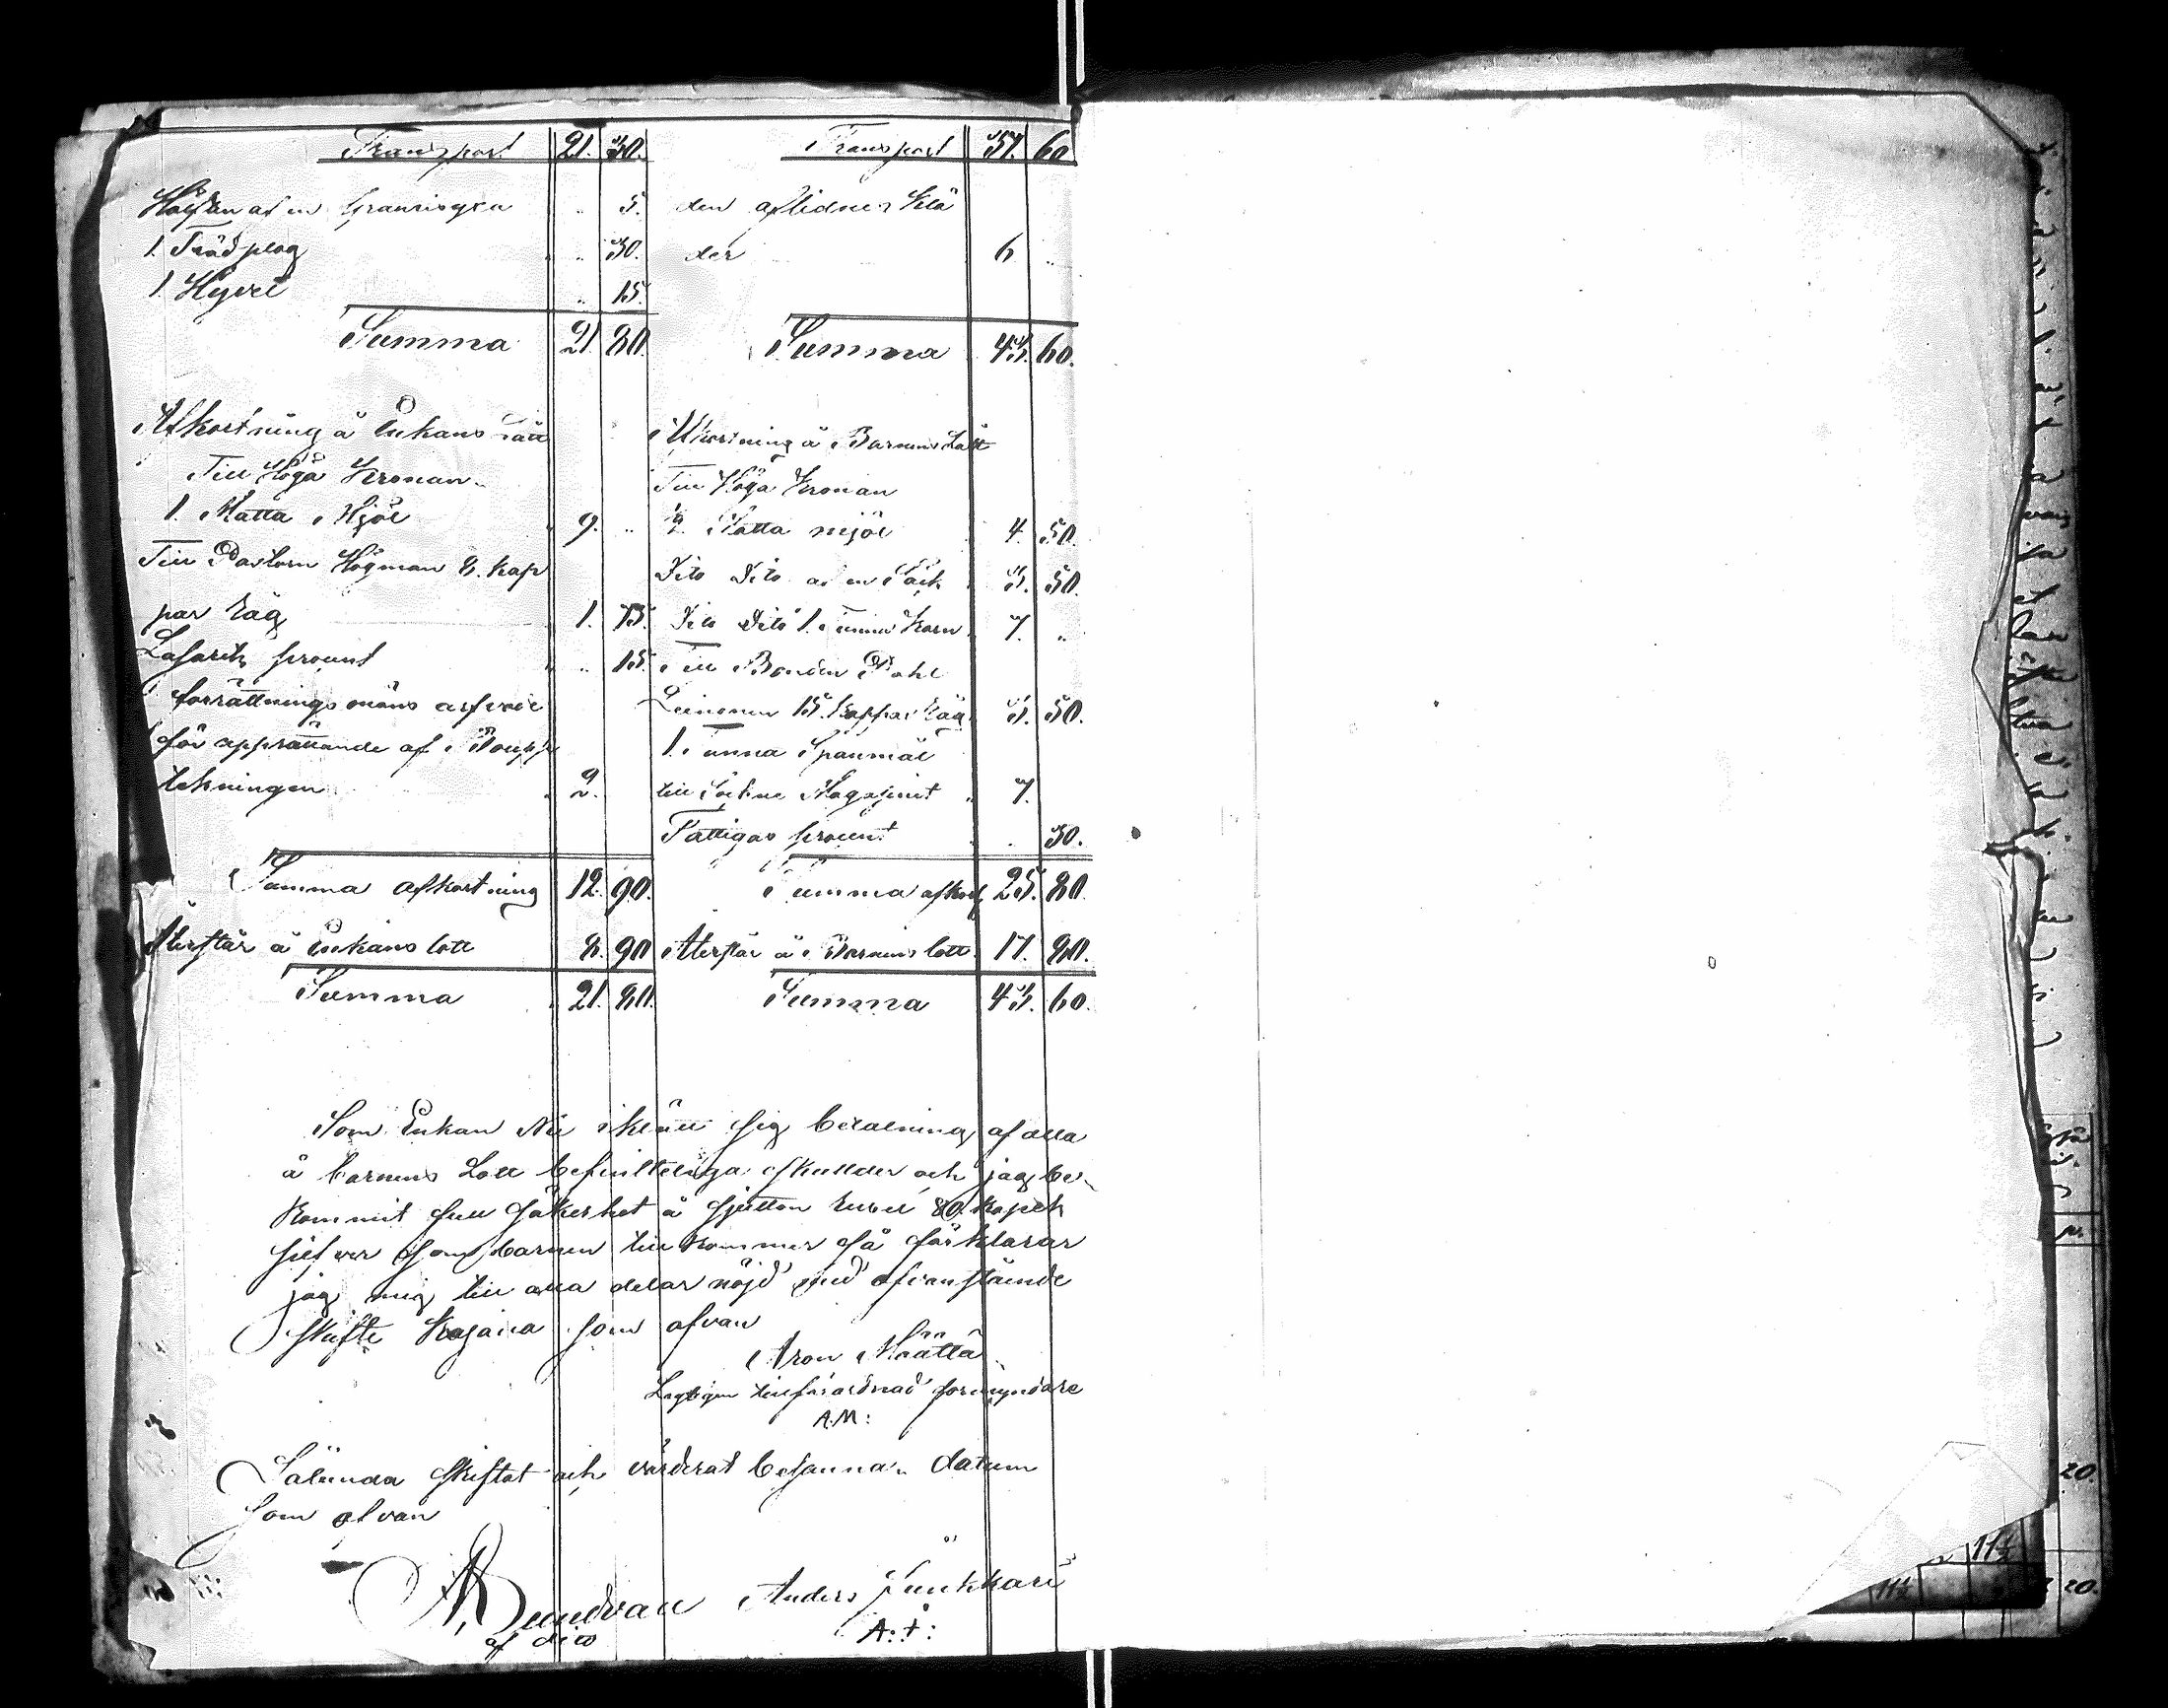 Transport 21. 30.
Hälften af en
5.
1. Trädplog 30.
1. Hyvel 15.
Summa 21. 80.
Afkortning å Enkans Lått
Till Höga Kronan
1. Matta Mjöl 9.
Till Pastorn Högman 8. kap
par Råg 1. 75.
Lasaretz procent 15.
förrättnings mäns arfvode
för upprättande af Boupp
tekningen 2.
Summa afkortning 12. 90.
Återstår å Enkans lott 8. 90
Summa 21. 80.
Transport 37. 60
den aflidnes Klä
der 6
Summa 43. 60.
Afkortning å Barnens Lått
Till Höga Kronan
1/2 Matta mjöl 4. 50.
Dito Dito af en Säck 3. 50.
Dito Dito 1. Tunna Korn 7.
Till Bonden Pohl
Leinonen 15. kappar Råg 3. 50.
1. Tunna Spanmål
till Sockne Magasinet 7.
Fattigas procent 30.
Summa afkort 25. 80.
Återstår å Barnens lott 17. 80.
Summa 43. 60.
Som Enkan
sig betalning af alla
å barnens Lott befinteliga skullder och jag be-
kommit full säkerhet å sjutton rubel 80. kopek
silfver som barnen tillkommer så förklarar
jag mig till alla delar nöjd med ofvanstående
skifte Kajana som ofvan
Aron Määttä
Lagligen tillförordnad förmyndare
A.M:
Sålunda skiftat och värderat besanna. datum
som ofvan
Anders Juntkkari
A: :